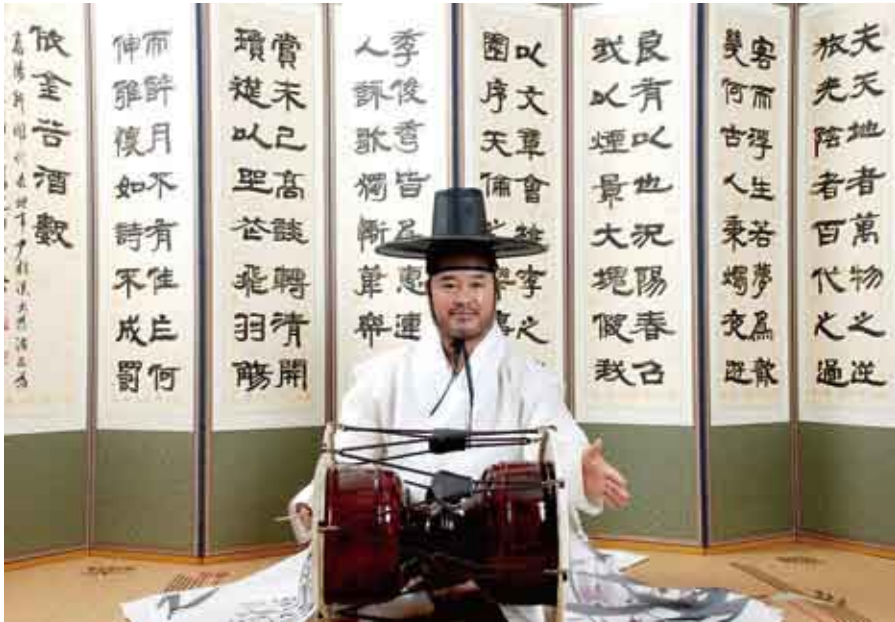 夫天地者萬物之逆
旅光陰者百代之過
客而浮生若夢爲歡
幾何古人秉燭夜遊
良有以也況陽春召
我以煙景大塊假我
以文章會桃李之
園序天倫之樂事
季俊秀皆爲惠連
人詠歌獨慚康樂
賞未已高談轉清開
瓊筵以坐花飛羽觴
而醉月不有佳作何
伸雅懷如詩不成罰
依金谷酒數